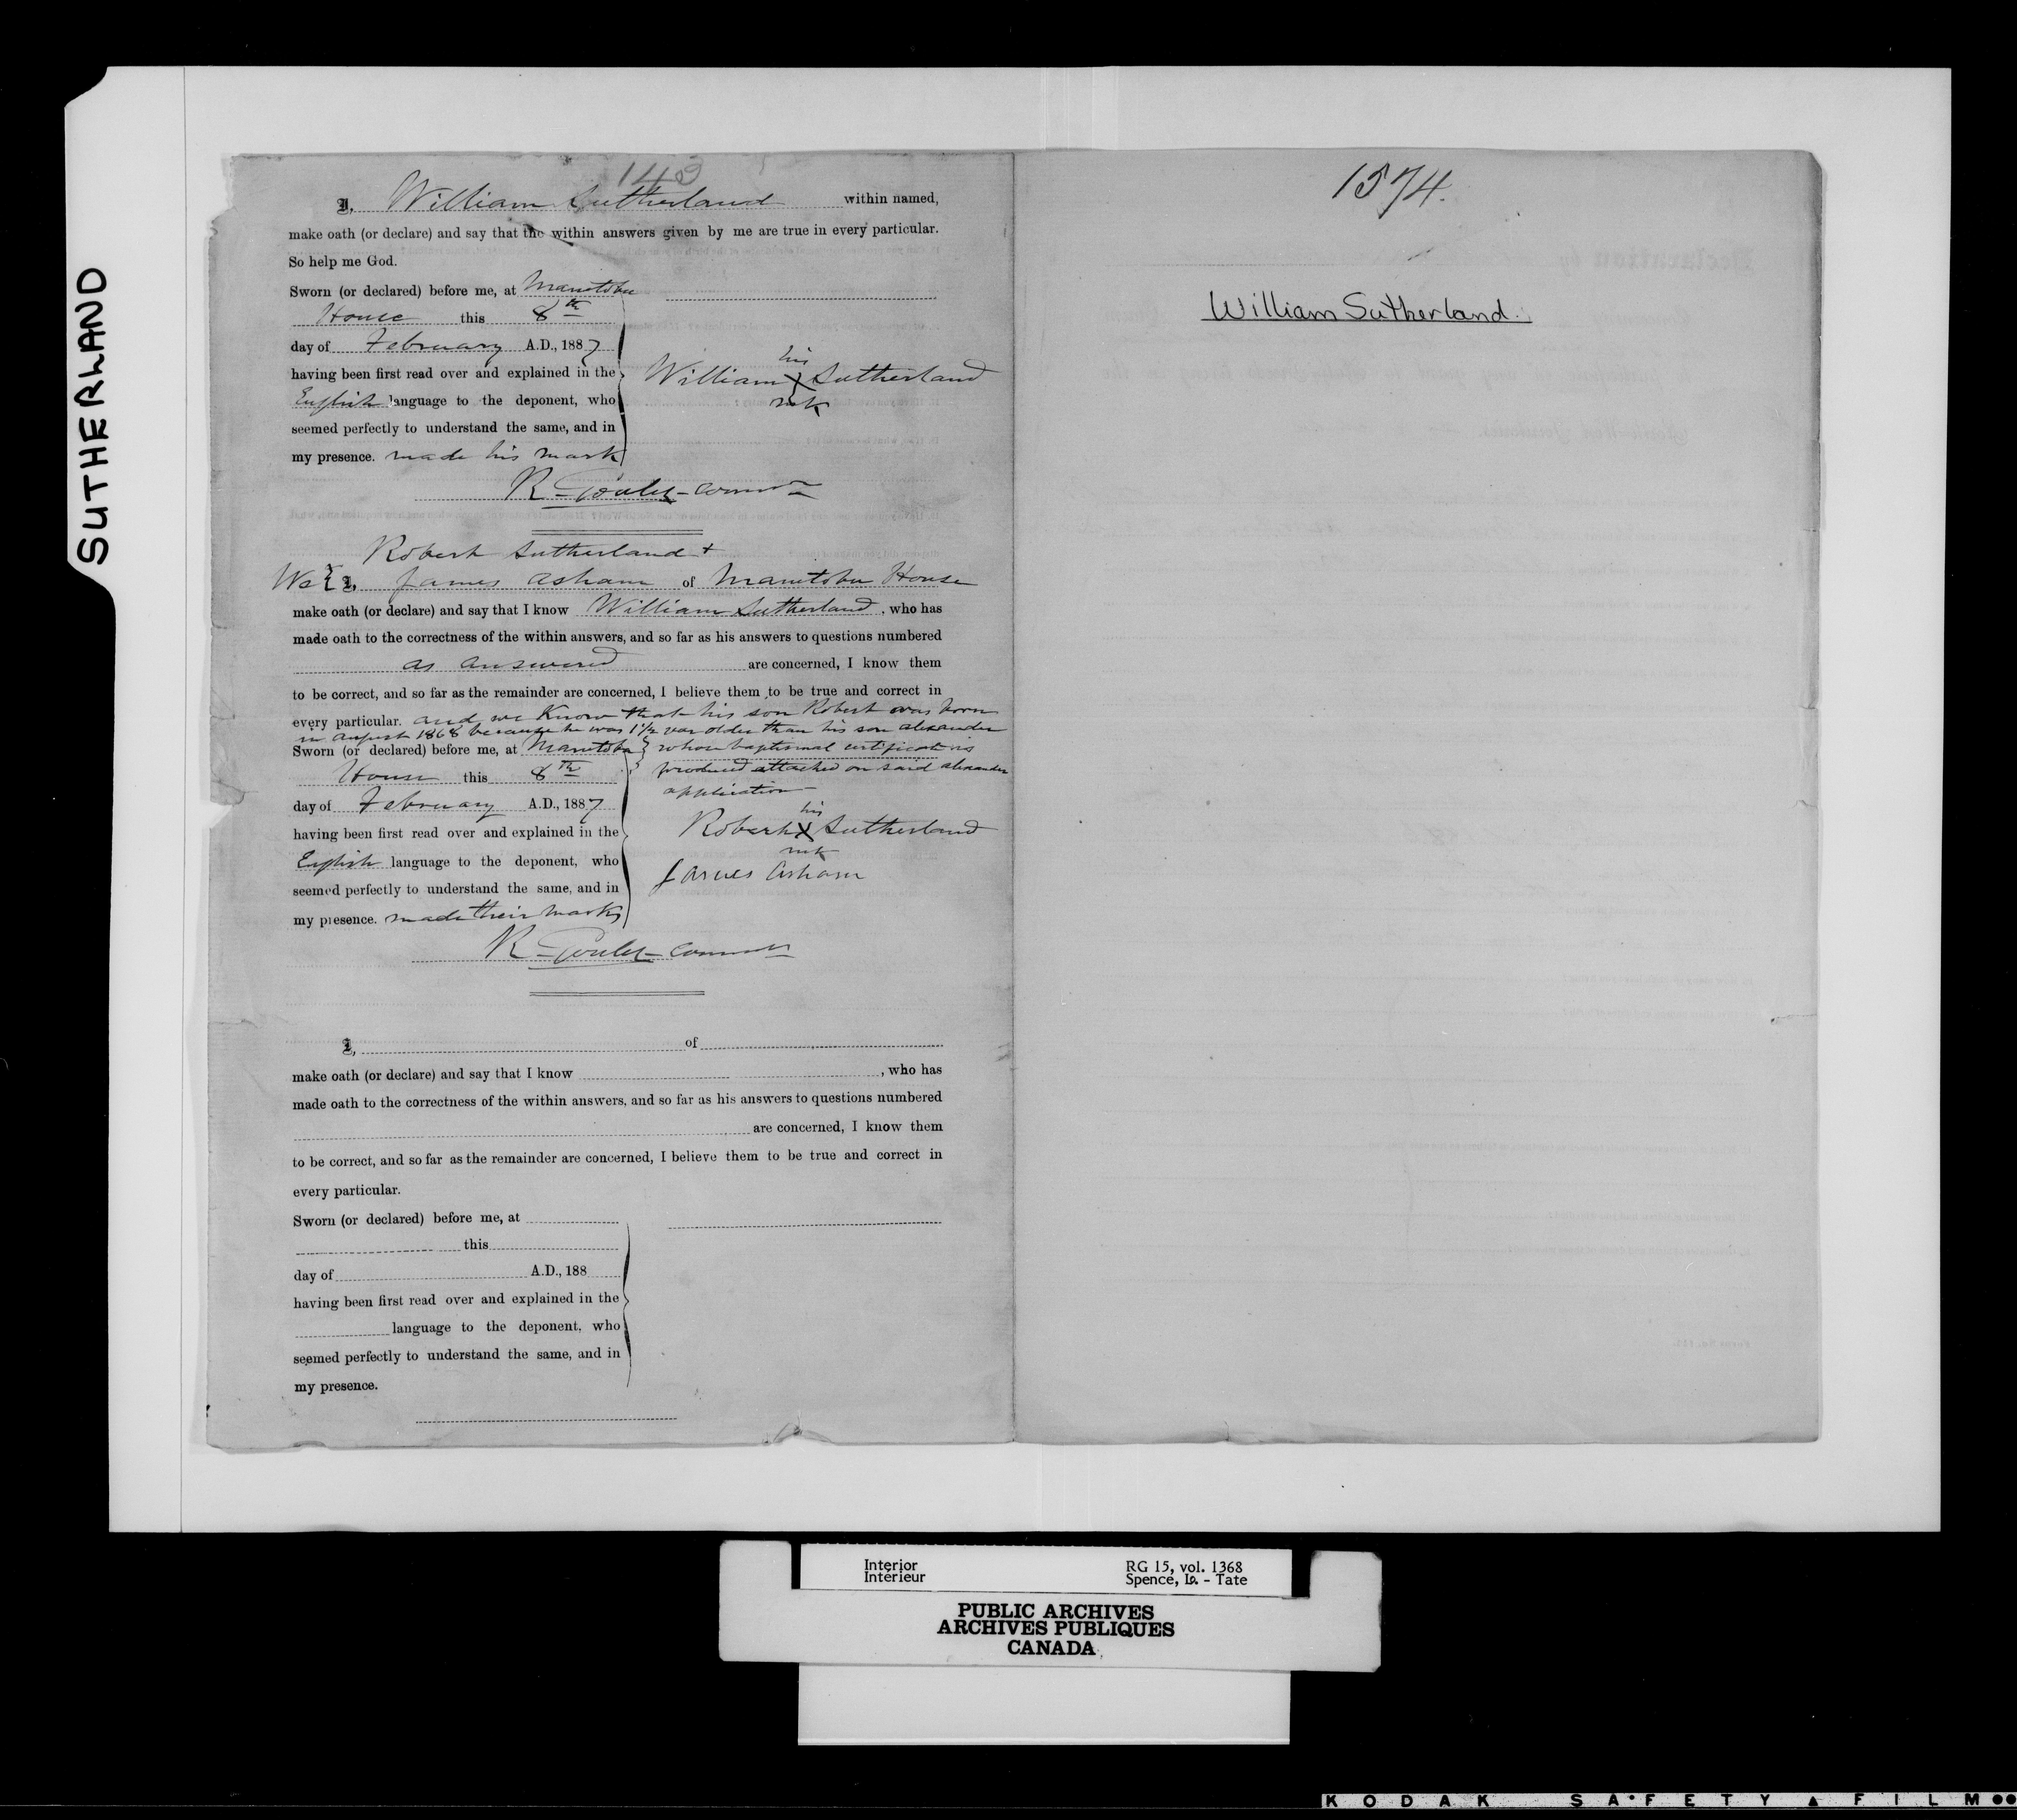 SUTHERLAND
143
I, William Sutherland within named,
make oath (or declare) and say that the within answers given by me are true in every particular.
So help me God.
Sworn (or declared) before me, at Manitoba
House this 8th
day of February A.D., 1887
having been first read over and explained in the
English language to the deponent, who
seemed perfectly to understand the same, and in
my presence. made his mark
his
William X Sutherland
mk
R. Goulet - Commr
Robert Sutherland +
We { I, James Asham of Manitoba House
make oath (or declare) and say that I know William Sutherland, who has
made oath to the correctness of the within answers, and so far as his answers to questions numbered
as answered are concerned, I know them
to be correct, and so far as the remainder are concerned, I believe them to be true and correct in
every particular. and we know that his son Robert was born
in august 1868 because he was 1 1/2 year older than his son alexander
whose baptismal certificate is
produced attached on said alexander
application -
Sworn (or declared) before me, at Manitoba
House this 8th
day of February A.D., 1887
having been first read over and explained in the
English language to the deponent, who
seemed perfectly to understand the same, and in
my presence. made their marks
his
Robert X Sutherland
mk
James Asham
R. Goulet - Commr
I, of
make oath (or declare) and say that I know , who has
made oath to the correctness of the within answers, and so far as his answers to questions numbered
are concerned, I know them
to be correct, and so far as the remainder are concerned, I believe them to be true and correct in
every particular.
Sworn (or declared) before me, at
this
day of A.D., 188
having been first read over and explained in the
language to the deponent, who
seemed perfectly to understand the same, and in
my presence.
1574.
William Sutherland.
Interior
Intérieur
RG 15, vol. 1368
Spence, Lo. - Tate
PUBLIC ARCHIVES
ARCHIVES PUBLIQUES
CANADA
KODAK SAFETY FILM